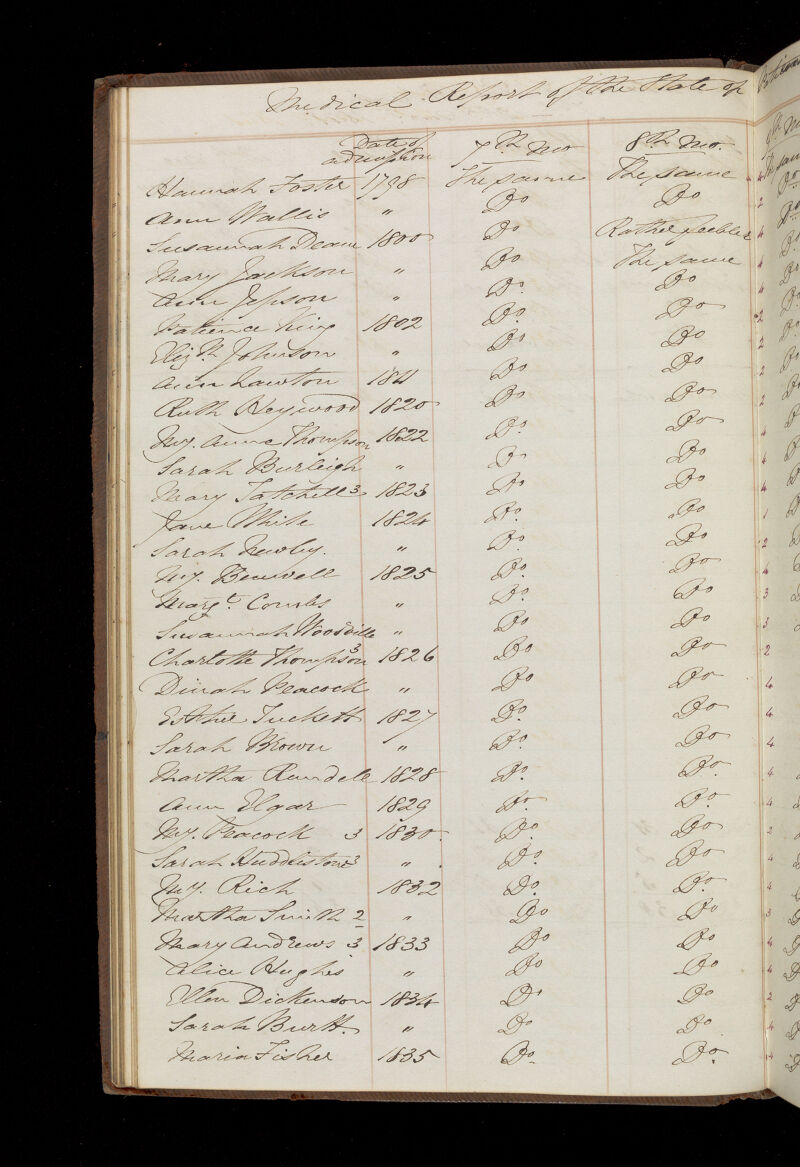 Medical Report of the State of
Date of admission 7th mo 8th mo.
Hannah Foster 1798 The same The same 4
Ann Wallis " Do Do 2
Susannah Deane 1800 Do Rather feebler 4
Mary Jackson " Do The same 4
Ann Jepson " Do. Do 4
Patience King 1802 Do. Do 2
Elizth Johnson " Do Do 2
Ann Lawton 1811 Do Do 2
Ruth Heywood 1820 Do Do 2
My. Anne Thompson 1822 Do. Do 4
Sarah Burleigh " Do 4
Mary Tatchell 3 1823 Do. Do 4
Jane White 1824 Do. Do 1
Sarah Newby. " Do. Do 2
My. Bennell 1825 Do. Do 4
Margt. Combs " Do. Do 3
Susannah Woodville " Do Do 3
Charlotte Thompson 3 1826 Do Do 2
Dinah Peacock " Do Do 4
Esther Tuckett 1827 Do. Do 4
Sarah Brown " Do. Do 4
Martha Rundell 1828 Do. Do. 4
Ann Elgar 1829 Do. Do. 4
My. Peacock 3 1830. Do. Do 2
Sarah Huddlestone 3 " Do. Do 4
My. Rich 1832 Do. Do. 4
Martha Smith 2 " Do Do 3
Mary Andrews 3 1833 Do Do 4
Alice Hughes " Do Do 4
Ellen Dickenson 1834 Do Do 2
Sarah Burtt. " Do Do 4
Maria Fisher 1835 Do. Do. 4